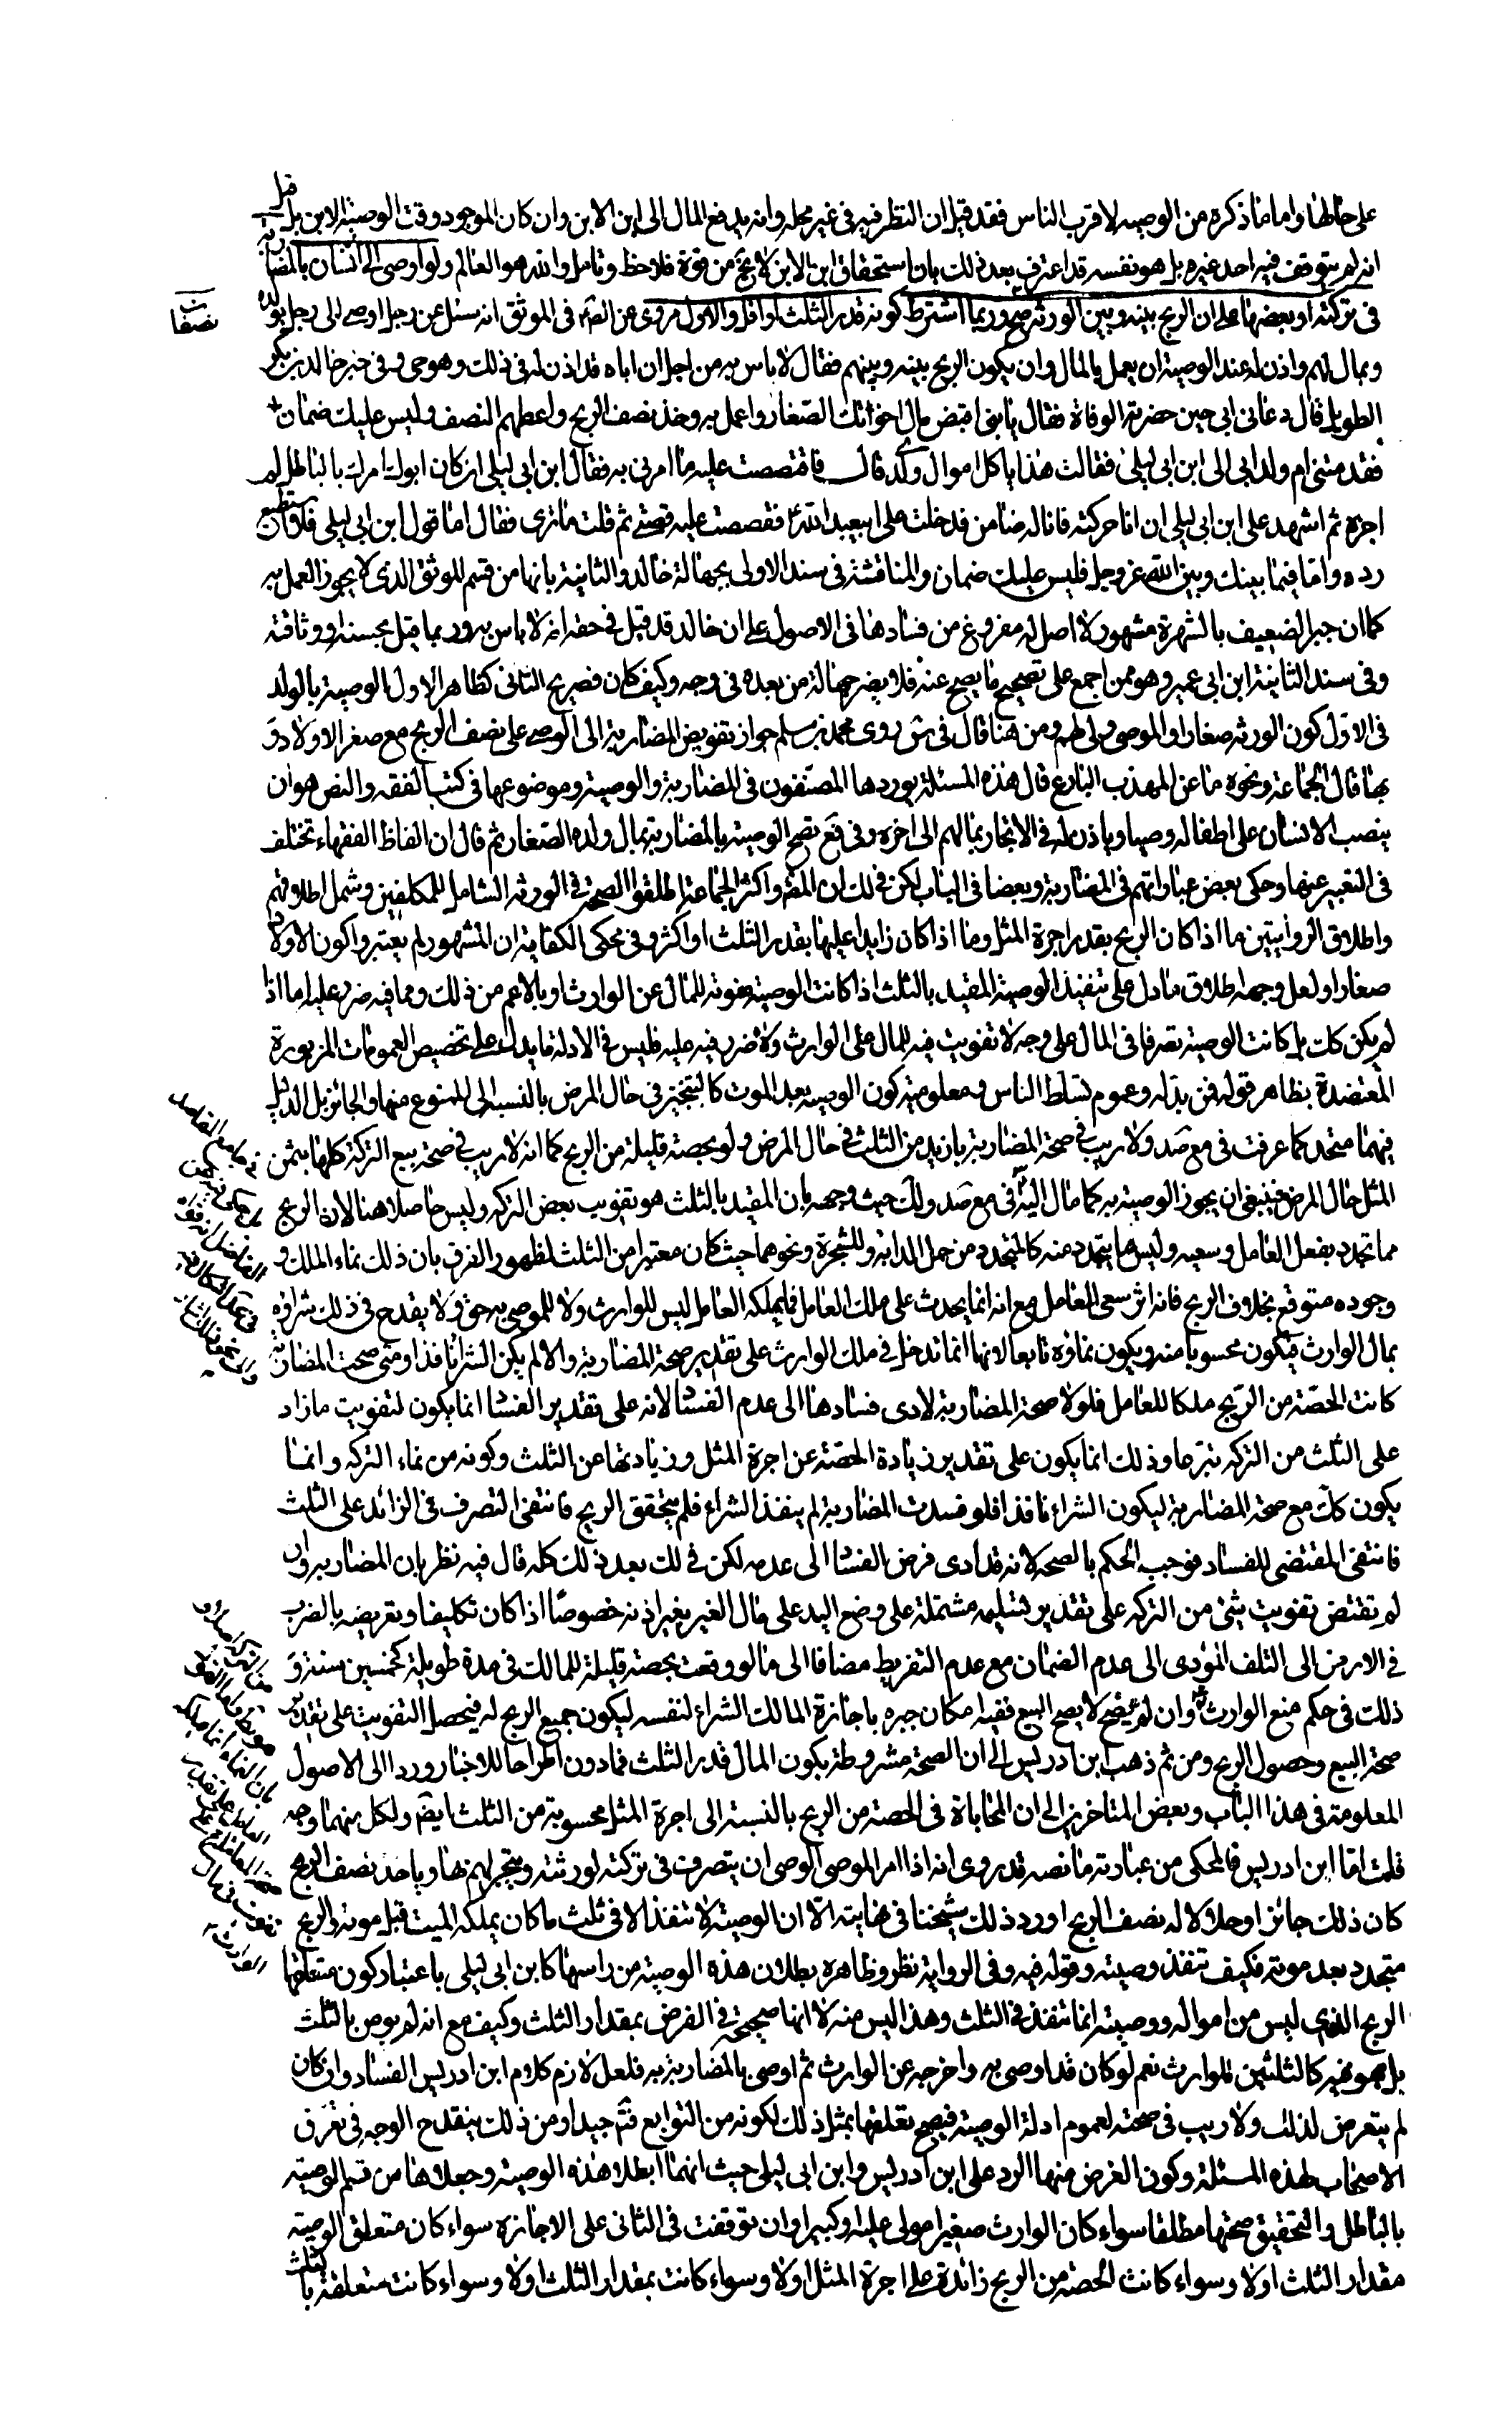 على حالها واما ما ذكره من الوصيه لاقرب الناس فقد قيل ان النظر فيه فى غير محله وانه يدفع المال الى ابن الابن وان كان الموجود وقت الوصية الابن بل قيل
انه لم يتوقف فيه احد غيره بل هو نفسه قد اعترف بعد ذلك بان استحقاق ابن الابن لا يخ من قوة فلاحظ وتامل والله هو العالم ولو اوصى الى انسان بالمضاربة
فى تركته او بعضها على ان الربح بينه وبين الورثه صح وربما اشترط كونه قدر الثلث او اقل والاول مروى عن الص‍ فى الموثق انه سئل عن رجل اوصى الى رجل بولده
وبمال لهم واذن له عند الوصية ان يعمل بالمال وان يكون الربح بينه وبينهم فقال لا باس به من اجل ان اباه قد اذن له فى ذلك وهو حى وفى خبر خالد بن بكر
الطويل قال دعانى ابى حين حضرته الوفاة فقال يا بنى اقبض مال اخوتك الصغار واعمل به وخذ نصف الربح واعطهم النصف وليس عليك ضمان
فقدمتنى ام ولد ابى الى ابن ابى ليلى فقالت هذا ياكل اموال ولدى قال فاقتصصت عليه ما امرنى به فقال ابن ابى ليلى ان كان ابوك امرك بالباطل لم
اجزه ثم اشهد على ابن ابى ليلى ان انا حركته فانا له ضامن فدخلت على ابيعبد الله ع فقصصت عليه قصتى ثم قلت ما ترى فقال اما قول ابن ابى ليلى فلا استطيع
رده واما فيما بينك وبين الله عز وجل فليس عليك ضمان والمناقشة فى سند الاولى بجهالة خالد والثانية بانها من قسم الموثق الذى لا يجوز العمل به
كما ان جبر الضعيف بالشهرة مشهور لا اصل له مفروغ من فسادها فى الاصول على ان خالد قد قيل فى حقه انه لا باس به وربما قيل بحسنه او وثاقته
وفى سند الثانية ابن ابى عمير وهو ممن اجمع على تصحيح ما يصح عنه فلا يضر جهالة من بعده فى وجه وكيف كان فصريح الثانى كظاهر الاول الوصية بالولد
فى الاول كون الورثه صغارا او الموصى ولى لهم ومن هنا قال فى ش روى محمد بن مسلم جواز تفويض المضاربة الى الوصى على نصف الربح مع صغر الاولاد و
بها قال الجماعة ونحوه ما عن المهذب البارع قال هذه المسئلة يوردها المصنفون فى المضاربة والوصية وموضوعها فى كتب الفقه والنص هو ان
ينصب الانسان على اطفاله وصيا وياذن له فى الاتجار بمالهم الى اخره وفى قع تصح الوصية بالمضاربة بمال ولده الصغار ثم قال ان الفاظ الفقهاء تختلف
فى التعبير عنها وحكى بعض عباراتهم فى المضاربة وبعضا فى الباب لكن فى لك ان المص‍ واكثر الجماعة اطلقوا الصحة فى الورثة الشامل للمكلفين وشمل اطلاقهم
واطلاق الروايتين ما اذا كان الربح بقدر اجرة المثل وما اذا كان زايدا عليها بقدر الثلث او اكثر وفى محكى الكفاية ان المشهور لم يعتبروا كون الاولاد
صغارا ولعل وجهه اطلاق ما دل على تنفيذ الوصية المقيد بالثلث اذا كانت الوصية مفوتة للمال عن الوارث او بالاعم من ذلك ومما فيه ضرر عليه اما اذا
لم يكن كك بل كانت الوصية تصرفا فى المال على وجه لا تفويت فيه للمال على الوارث ولا ضرر فيه عليه فليس فى الادلة ما يدل على تخصيص العمومات المزبورة
المعتضدة بظاهر قوله فمن بدله وعموم تسلط الناس ومعلومية كون الوصيه بعد الموت كالتنجيز فى حال المرض بالنسبه الى الممنوع منها والجائز بل الدليل
فيهما متحد كما عرفت فى مع صد ولا ريب فى صحة المضاربة بازيد من الثلث فى حال المرض ولو بحصة قليلة من الربح كما انه لا ريب فى صحة بيع التركة كلها بثمن
المثل حال المرض فينبغى ان يجوز الوصية به كما مال اليه فى مع صد ولك حيث وجهه بان المقيد بالثلث هو تفويت بعض التركه وليس حاصلا هنا لان الربح
مما تجدد بفعل العامل وسعيه وليس ما يتجدد منه كالمتجدد من حمل الدابة والشجرة ونحوهما حيث كان معتبرا من الثلث لظهور الفرق بان ذلك نماء الملك و
وجوده متوقع بخلاف الربح فانه اثر سعى العامل مع انه انما يحدث على ملك العامل فما يملكه العامل ليس للوارث ولا للموصى به حق ولا يقدح فى ذلك شراؤه
بمال الوارث فيكون محسوبا منه ويكون نماؤه تابعا لانها انما تدخل فى ملك الوارث على تقدير صحة المضاربة والا لم يكن الشراء نافذا ومتى صحت المضاربة
كانت الحصة من الربح ملكا للعامل فلولا صحة المضاربة لادى فسادها الى عدم الفسا لانه على تقدير الفسا انما يكون لتفويت ما زاد
على الثلث من التركه تبرعا وذلك انما يكون على تقدير زيادة الحصة عن اجرة المثل وزيادتها عن الثلث وكونه من نماء التركه وانما
يكون كك مع صحة المضاربة ليكون الشراء نافذا فلو فسدت المضاربة لم ينفذ الشراء فلم يتحقق الربح فانتفى التصرف فى الزائد على الثلث
فانتفى المقتضى للفساد فوجب الحكم بالصحه لانه قد ادى فرض الفسا الى عدمه لكن فى لك بعد ذلك كله قال فيه نظر بان المضاربه وان
لم تقتض تفويت شئ من التركه على تقدير تسليمه مشتملة على وضع اليد على مال الغير بغير اذنه خصوصا اذا كان تكليفا وتعريضه بالضرب
فى الارض الى التلف المؤدى الى عدم الضمان مع عدم التفريط مضافا الى ما لو وقعت بحصة قليلة للمالك فى مدة طويلة كخمسين سنة و
ذلك فى حكم منع الوارث وان لم يصح لا يصح البيع ففيه امكان جبره باجازة المالك الشراء لنفسه ليكون جميع الربح له فيحصل التفويت على تقدير
صحة البيع وحصول الربح ومن ثم ذهب ابن ادريس الى ان الصحة مشروطة بكون المال قدر الثلث فما دون اطراحا للاخبار وردا الى الاصول
المعلومة فى هذا الباب وبعض المتاخرين الى ان المحاباة فى الحصة من الربح بالنسبة الى اجرة المثل محسوبة من الثلث ايض‍ ولكل منهما وجه
قلت اما ابن ادريس فالمحكى من عبارته ما نصه قد روى انه اذا امر الموصى الوصى ان يتصرف فى تركته لورثته ويتجر لهم بها وياخذ نصف الربح
كان ذلك جائزا وحلالا له نصف الربح اورد ذلك شيخنا فى نهايته الا ان الوصية لا تنفذ الا فى ثلث ما كان يملكه الميت قبل موته والربح
متجدد بعد موته فكيف تنفذ وصيته وقوله فيه وفى الرواية نظر وظاهره بطلان هذه الوصية من راسها كابن ابى ليلى باعتبار كون متعلقها
الربح الذى ليس من امواله ووصيته انما تنفذ فى الثلث وهذا ليس منه لا انها صحيحة فى الفرض بمقدار الثلث وكيف مع انه لم يوص بالثلث
بل هو فيه كالثلثين للوارث نعم لو كان قد اوصى به واخرجه عن الوارث ثم اوصى بالمضاربة به فلعل لازم كلام ابن ادريس الفساد وان كان
لم يتعرض لذلك ولا ريب فى صحته لعموم ادلة الوصية فيصح تعلقها بمثل ذلك لكونه من التوابع فتم جيدا ومن ذلك ينقدح الوجه فى تعرض
الاصحاب لهذه المسئلة وكون الغرض منها الرد على ابن ادريس وابن ابى ليلى حيث انهما ابطلا هذه الوصية وجعلاها من قسم الوصية
بالباطل والتحقيق صحتها مطلقا سواء كان الوارث صغيرا مولى عليه او كبيرا وان توقفت فى الثانى على الاجازه سواء كان متعلق الوصية
مقدار الثلث او لا وسواء كانت الحصة من الربح زائدة على اجرة المثل او لا وسواء كانت بمقدار الثلث او لا وسواء كانت متعلقة بالثلث